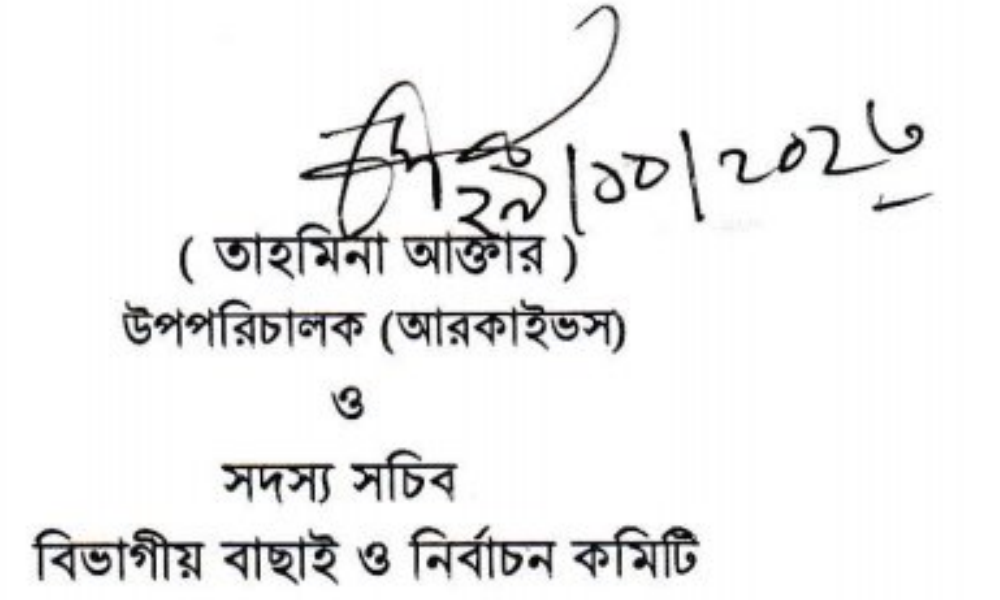 ২৯/১০/২০২৬
( তাহমিনা আক্তার )
উপপরিচালক (আরকাইভস)
ও
সদস্য সচিব
বিভাগীয় বাছাই ও নির্বাচন কমিটি